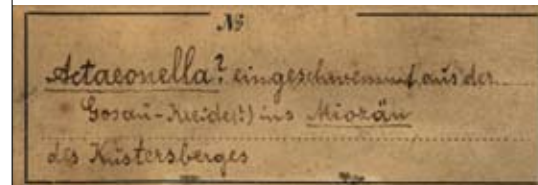 No
Actaeonella? eingeschwemmt aus der
Gosau-Kreide(?) ins Miozän
des Küstersberges